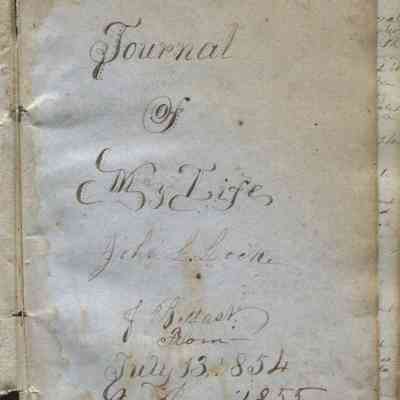 Journal
Of
My Life
John L. Locke
of Belfast
From
July 13. 1854
1855